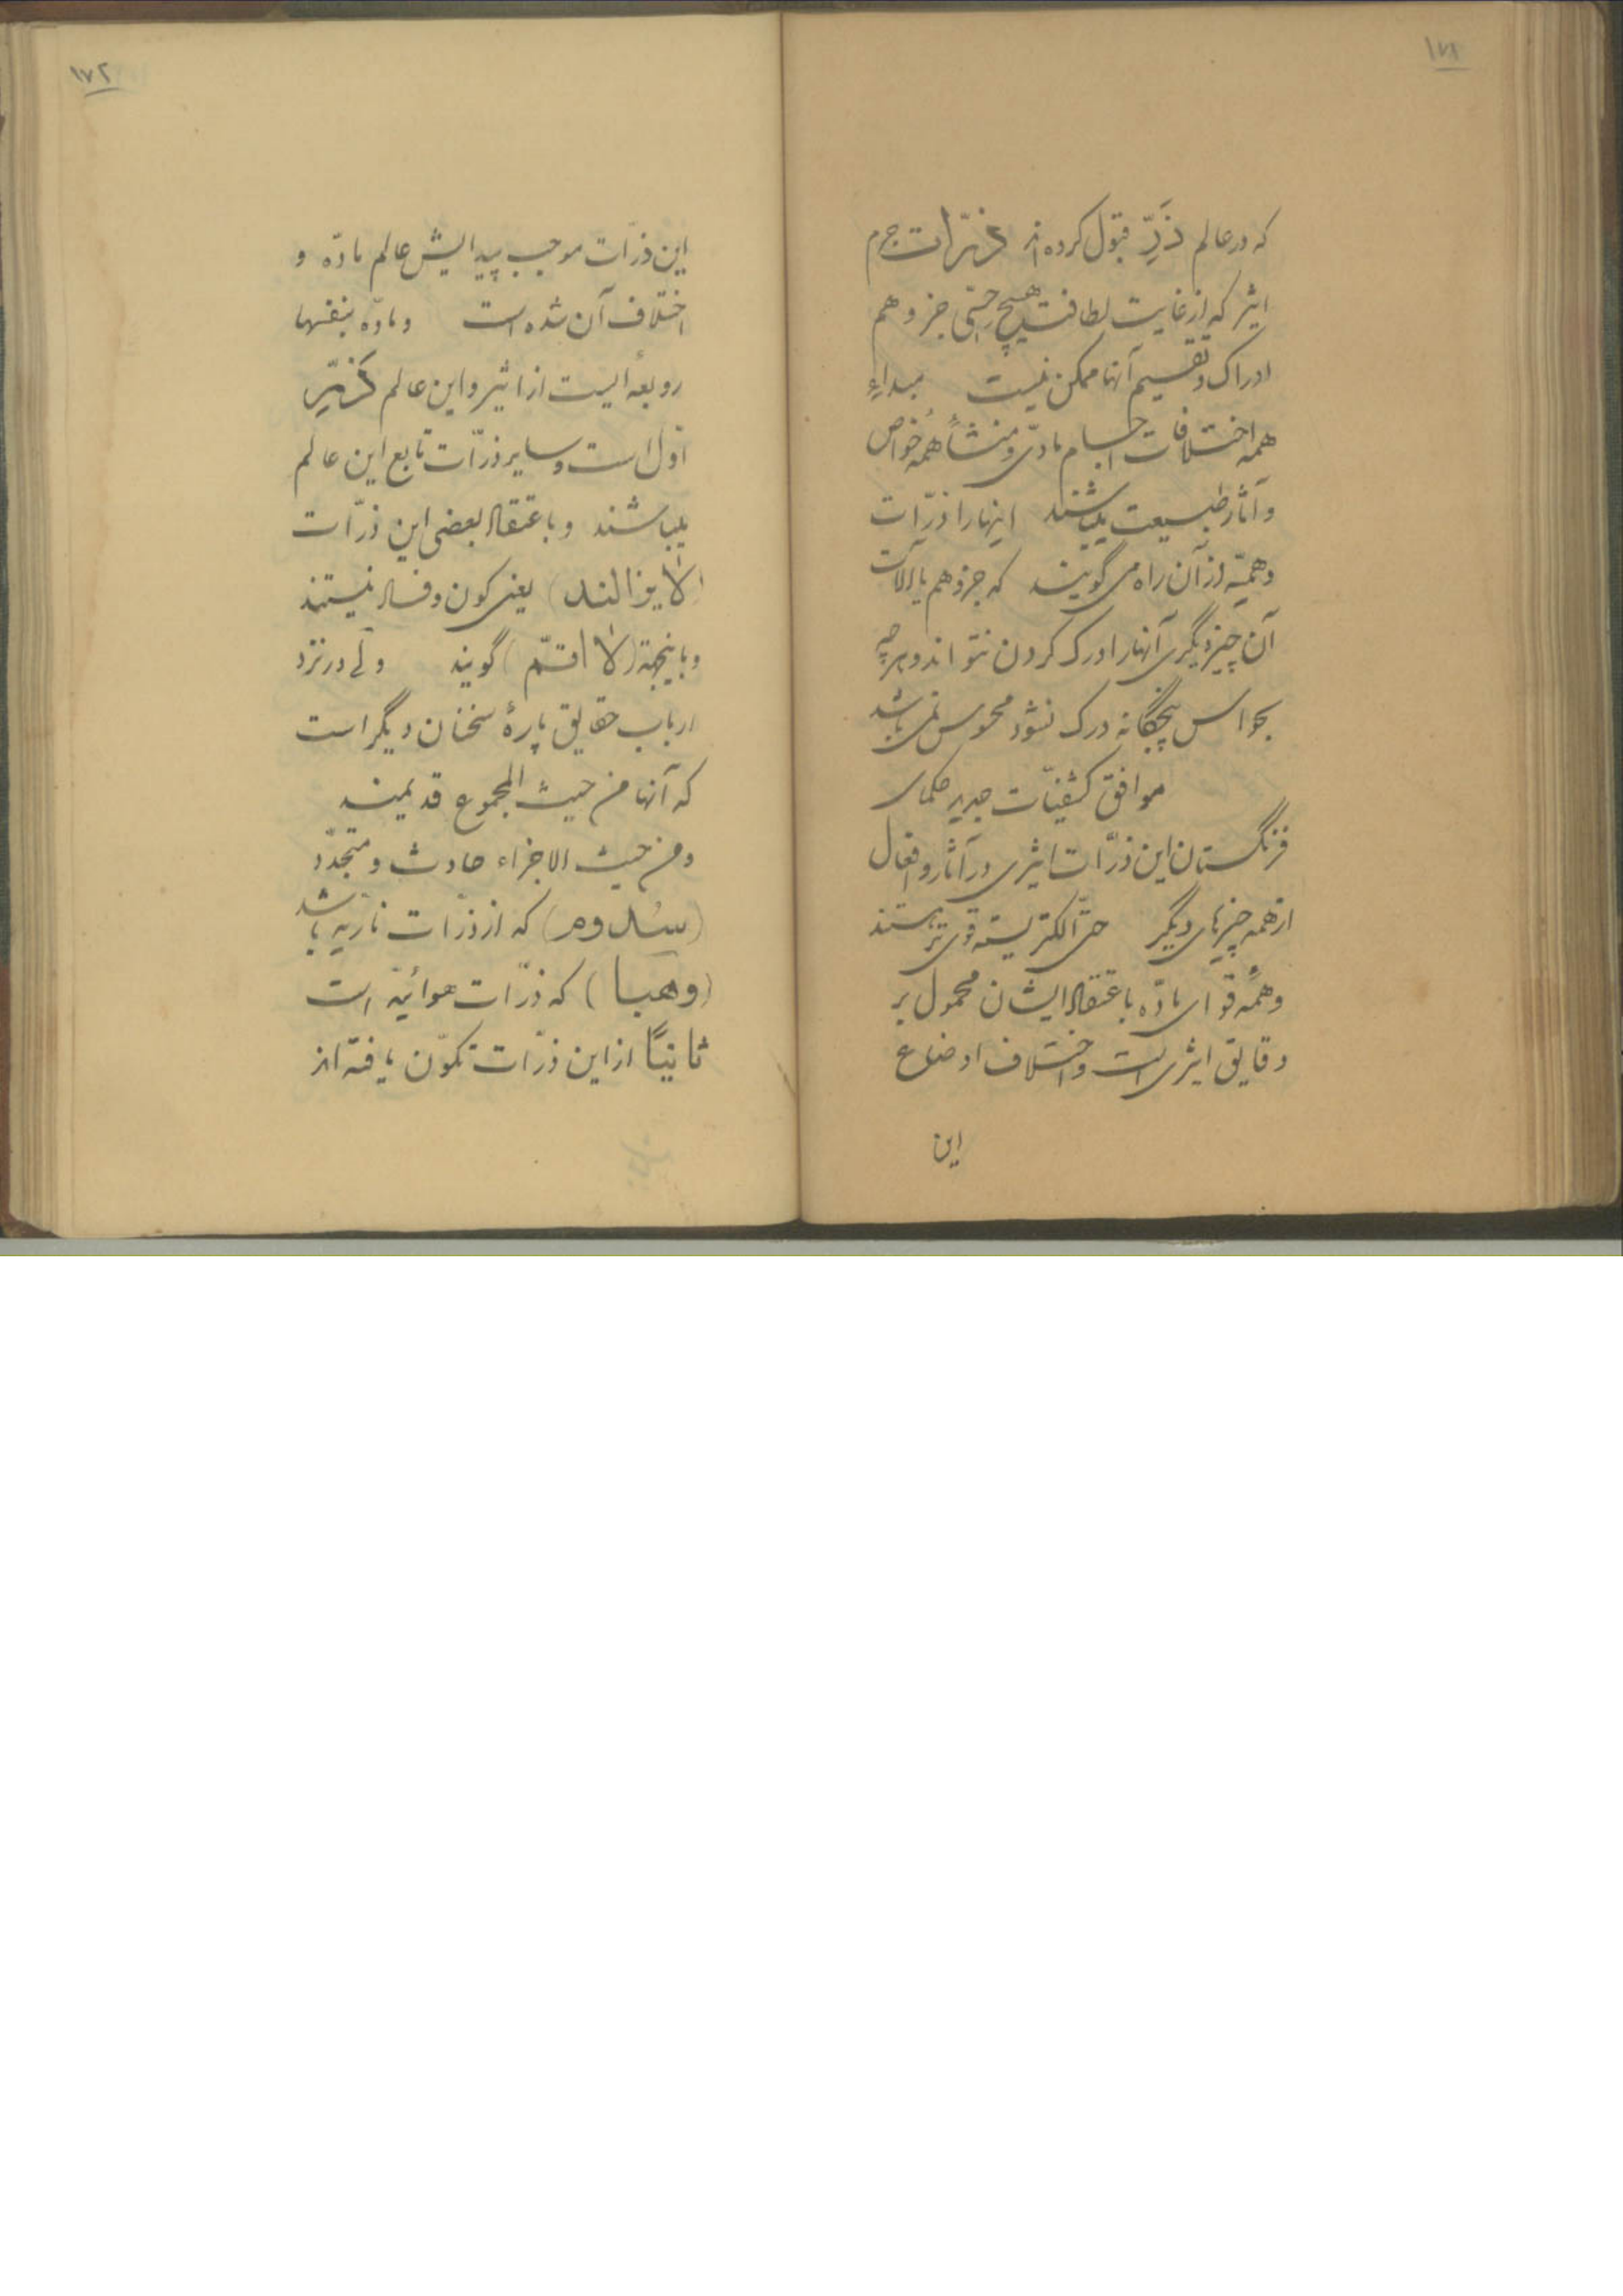 ١٧١
که در عالم ذَرّ قبول کرده‌اند ذرّات جرم
اثیر که از غایت لطافت بهیچ حسّی جز وهم
ادراک و تقسیم آنها ممکن نیست مبداءِ
همه اختلافات اجسام مادّی و منشأ همه خواص
و آثار طبیعت میباشند اینها را ذرّات
وهمیّه از آن راه می گویند که جز وهم یا آلات
آن چیز دیگری آنها را درک کردن نتواند و هر چه
بحواس پنجگانه درک نشود محسوس نمی باشد
موافق کشفیّات جدید حکمای
فرنگستان این ذرّات اثیری در آثار و افعال
از همه چیزهای دیگر حتّی الکتریسته قوی تر هستند
و همهٔ قوای مادّه باعتقاد ایشان محمول بر
دقایق اثیری است و اختلاف اوضاع
این
١٧٢
این ذرّات موجب پیدایش عالم مادّه و
اختلاف آن شده است و مادّه بنفسها
روبعه‌ایست از اثیر و این عالم ذَرِّ
اوّل است و سایر ذرّات تابع این عالم
میباشند و باعتقاد بعضی این ذرّات
(لایزالند) یعنی کون و فساد نیستند
و باینجهة (لا اقسّم) گویند ولی در نزد
ارباب حقایق پارهٔ سخنان دیگر است
که آنها من حیث المجموع قدیمند
و من حیث الاجزاء حادث و متجدّد
(سدوم) که از ذرّات ناریه باشد
(وهبا) که ذرّات هوائیّه است
ثانیاً از این ذرّات تکوّن یافته‌اند